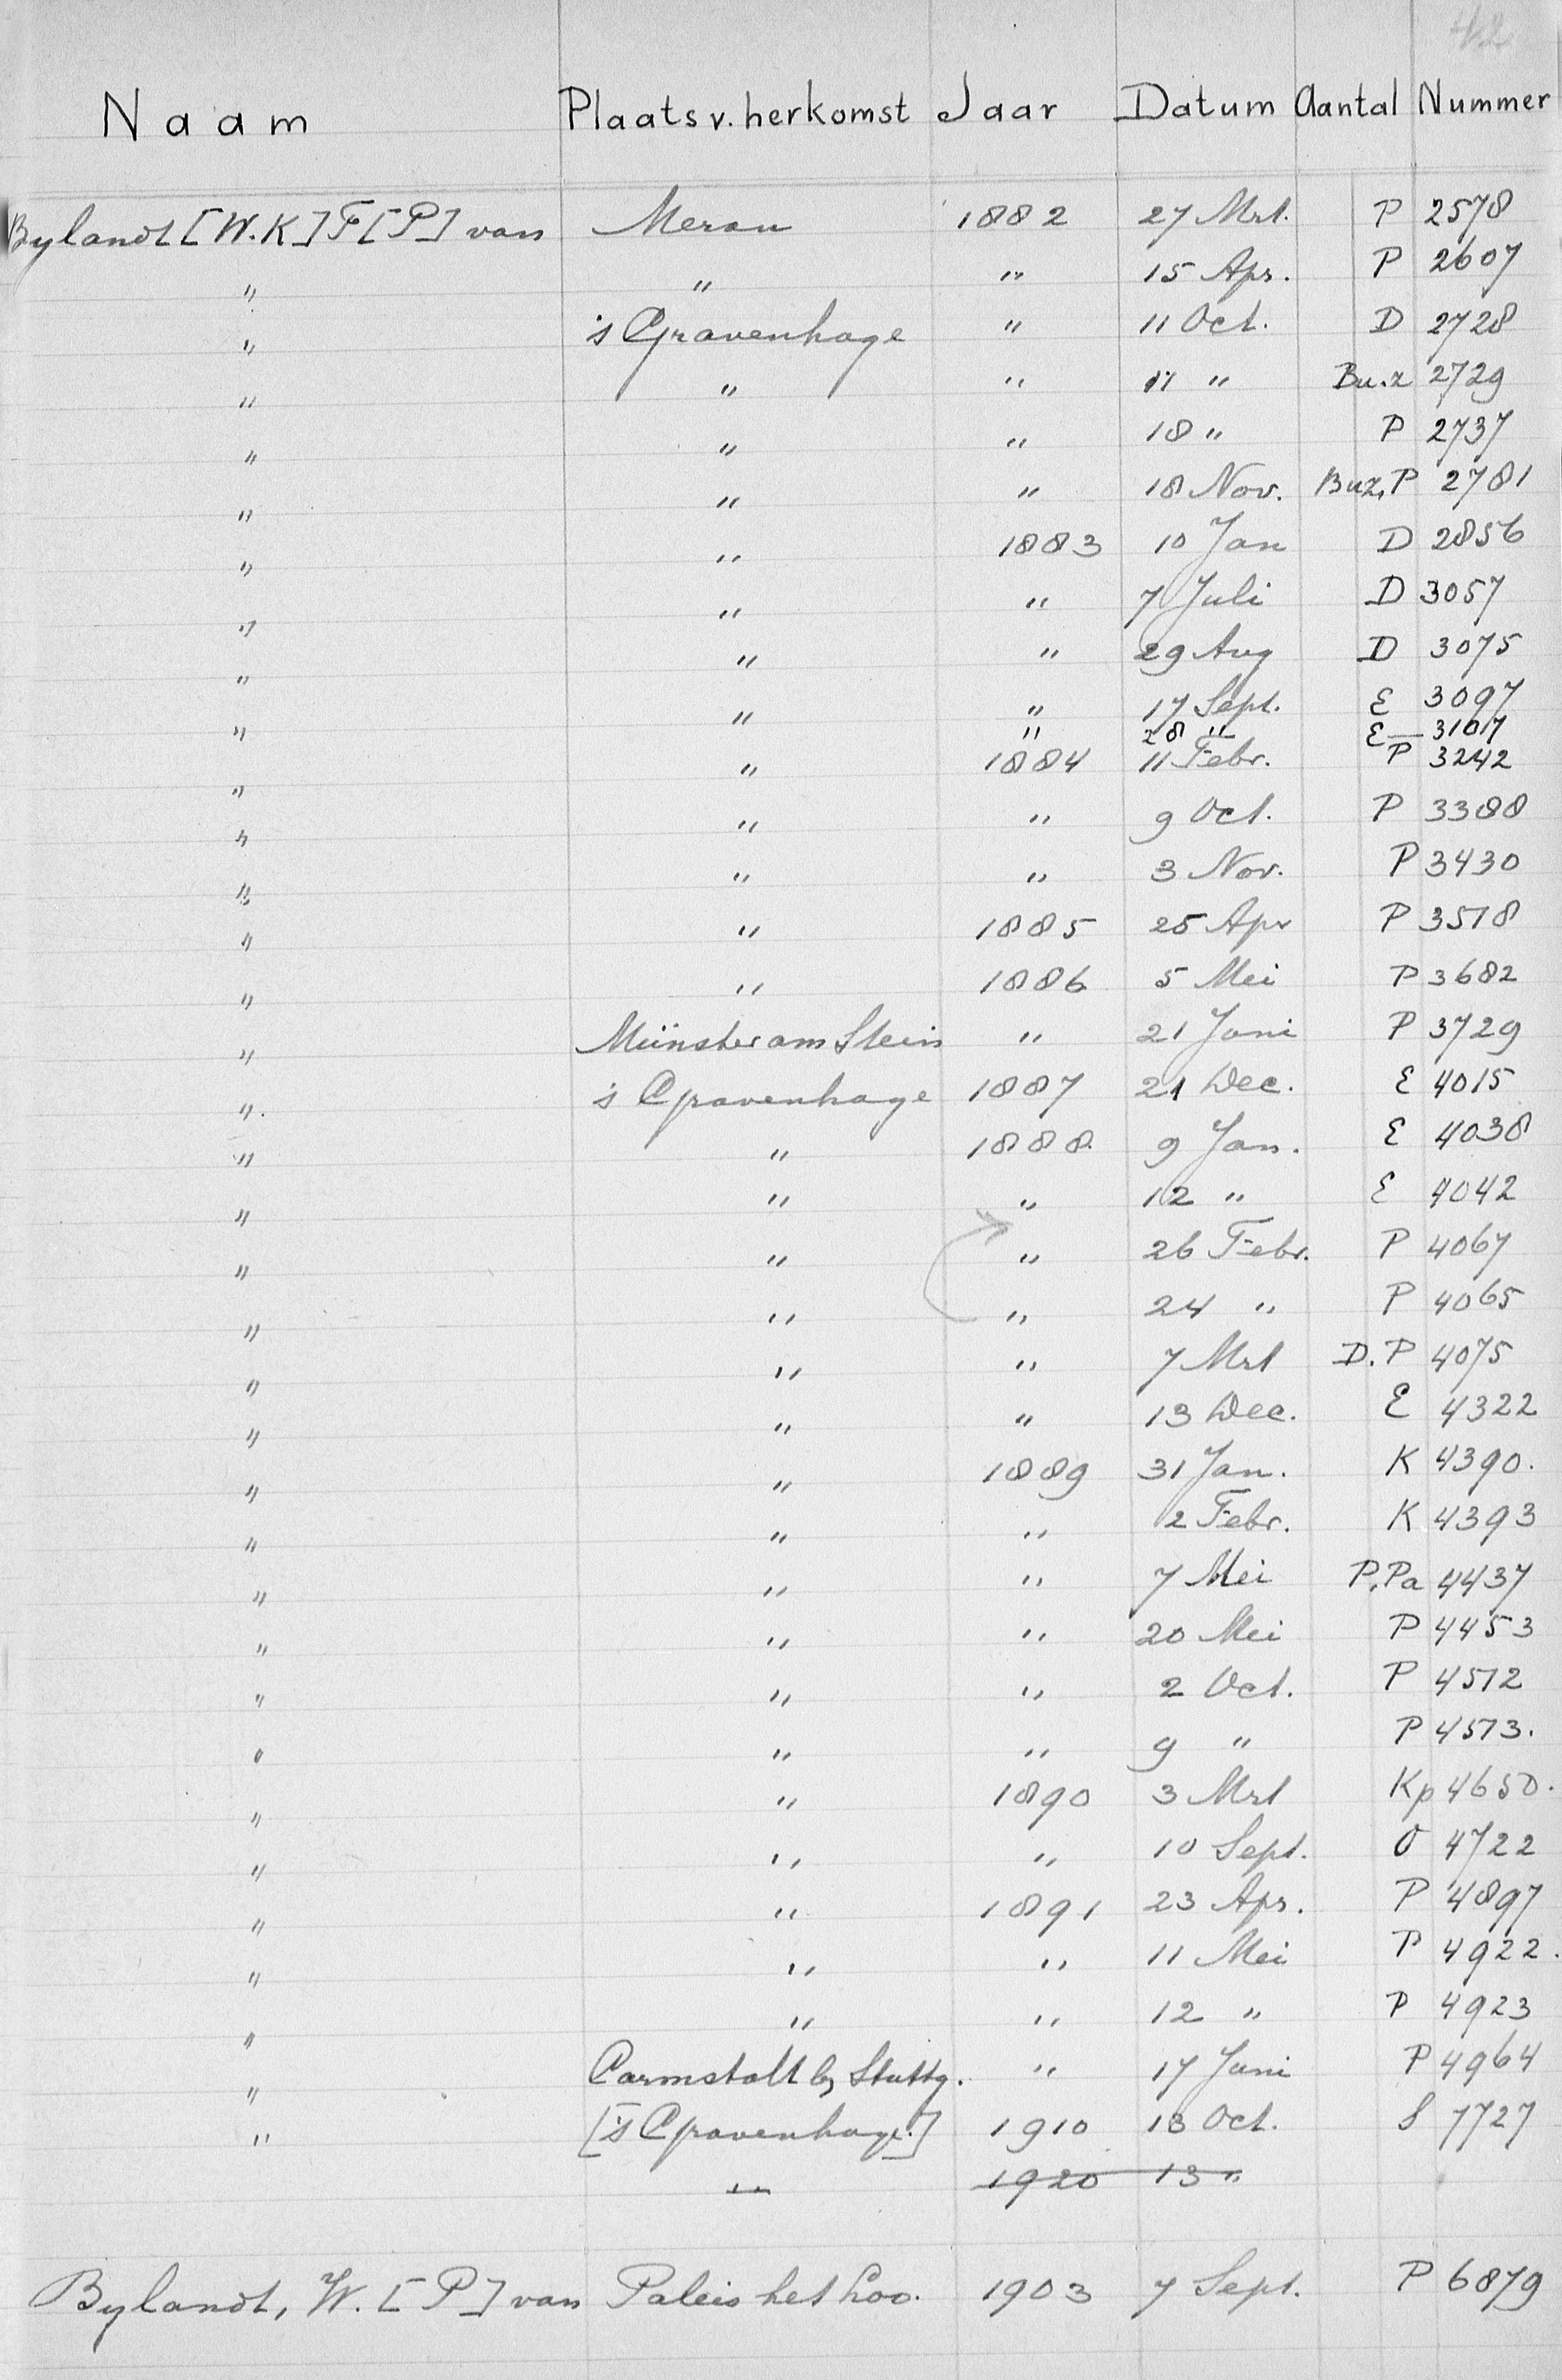 42
Naam Plaats v. herkomst Jaar Datum Aantal Nummer
Bylandt [W.K] F[P] van Meran 1882 27 Mrt. P 2578
" " " 15 Apr. P 2607
" 's Gravenhage " 11 Oct. D 2728
" " " 11 " Bu.z 2729
" " " 18 " P 2737
" " " 18 Nov. Buz, P 2781
" " 1883 10 Jan D 2856
" " " 7 Juli D 3057
" " " 29 Aug D 3075
" " " 17 Sept. E 3097
" 28 " E — 3107
" " 1884 11 Febr. P 3242
" " " 9 Oct. P 3388
" " " 3 Nov. P 3430
" " 1885 25 Apr P 3518
" " 1886 5 Mei P 3682
" Münster am Stein " 21 Juni P 3729
" 's Gravenhage 1887 21 Dec. E 4015
" " 1888 9 Jan. E 4038
" " " 12 " E 4042
" " " 26 Febr. P 4067
" " " 24 " P 4065
" " " 7 Mrt D. P 4075
" " " 13 Dec. E 4322
" " 1889 31 Jan. K 4390.
" " " 2 Febr. K 4393
" " " 7 Mei P. Pa 4437
" " " 20 Mei P 4453
" " " 2 Oct. P 4572
" " " 9 " P 4573.
" " 1890 3 Mrt Kp 4650.
" " " 10 Sept. O 4722
" " 1891 23 Apr. P 4897
" " " 11 Mei P 4922.
" " " 12 " P 4923
" Carmstatt by Stuttg. " 17 Juni P 4964
" ['s Gravenhage.] 1910 13 Oct. S 7727
" 1920 13 "
Bylandt, W. [P] van Paleis het Loo. 1903 7 Sept. P 6879